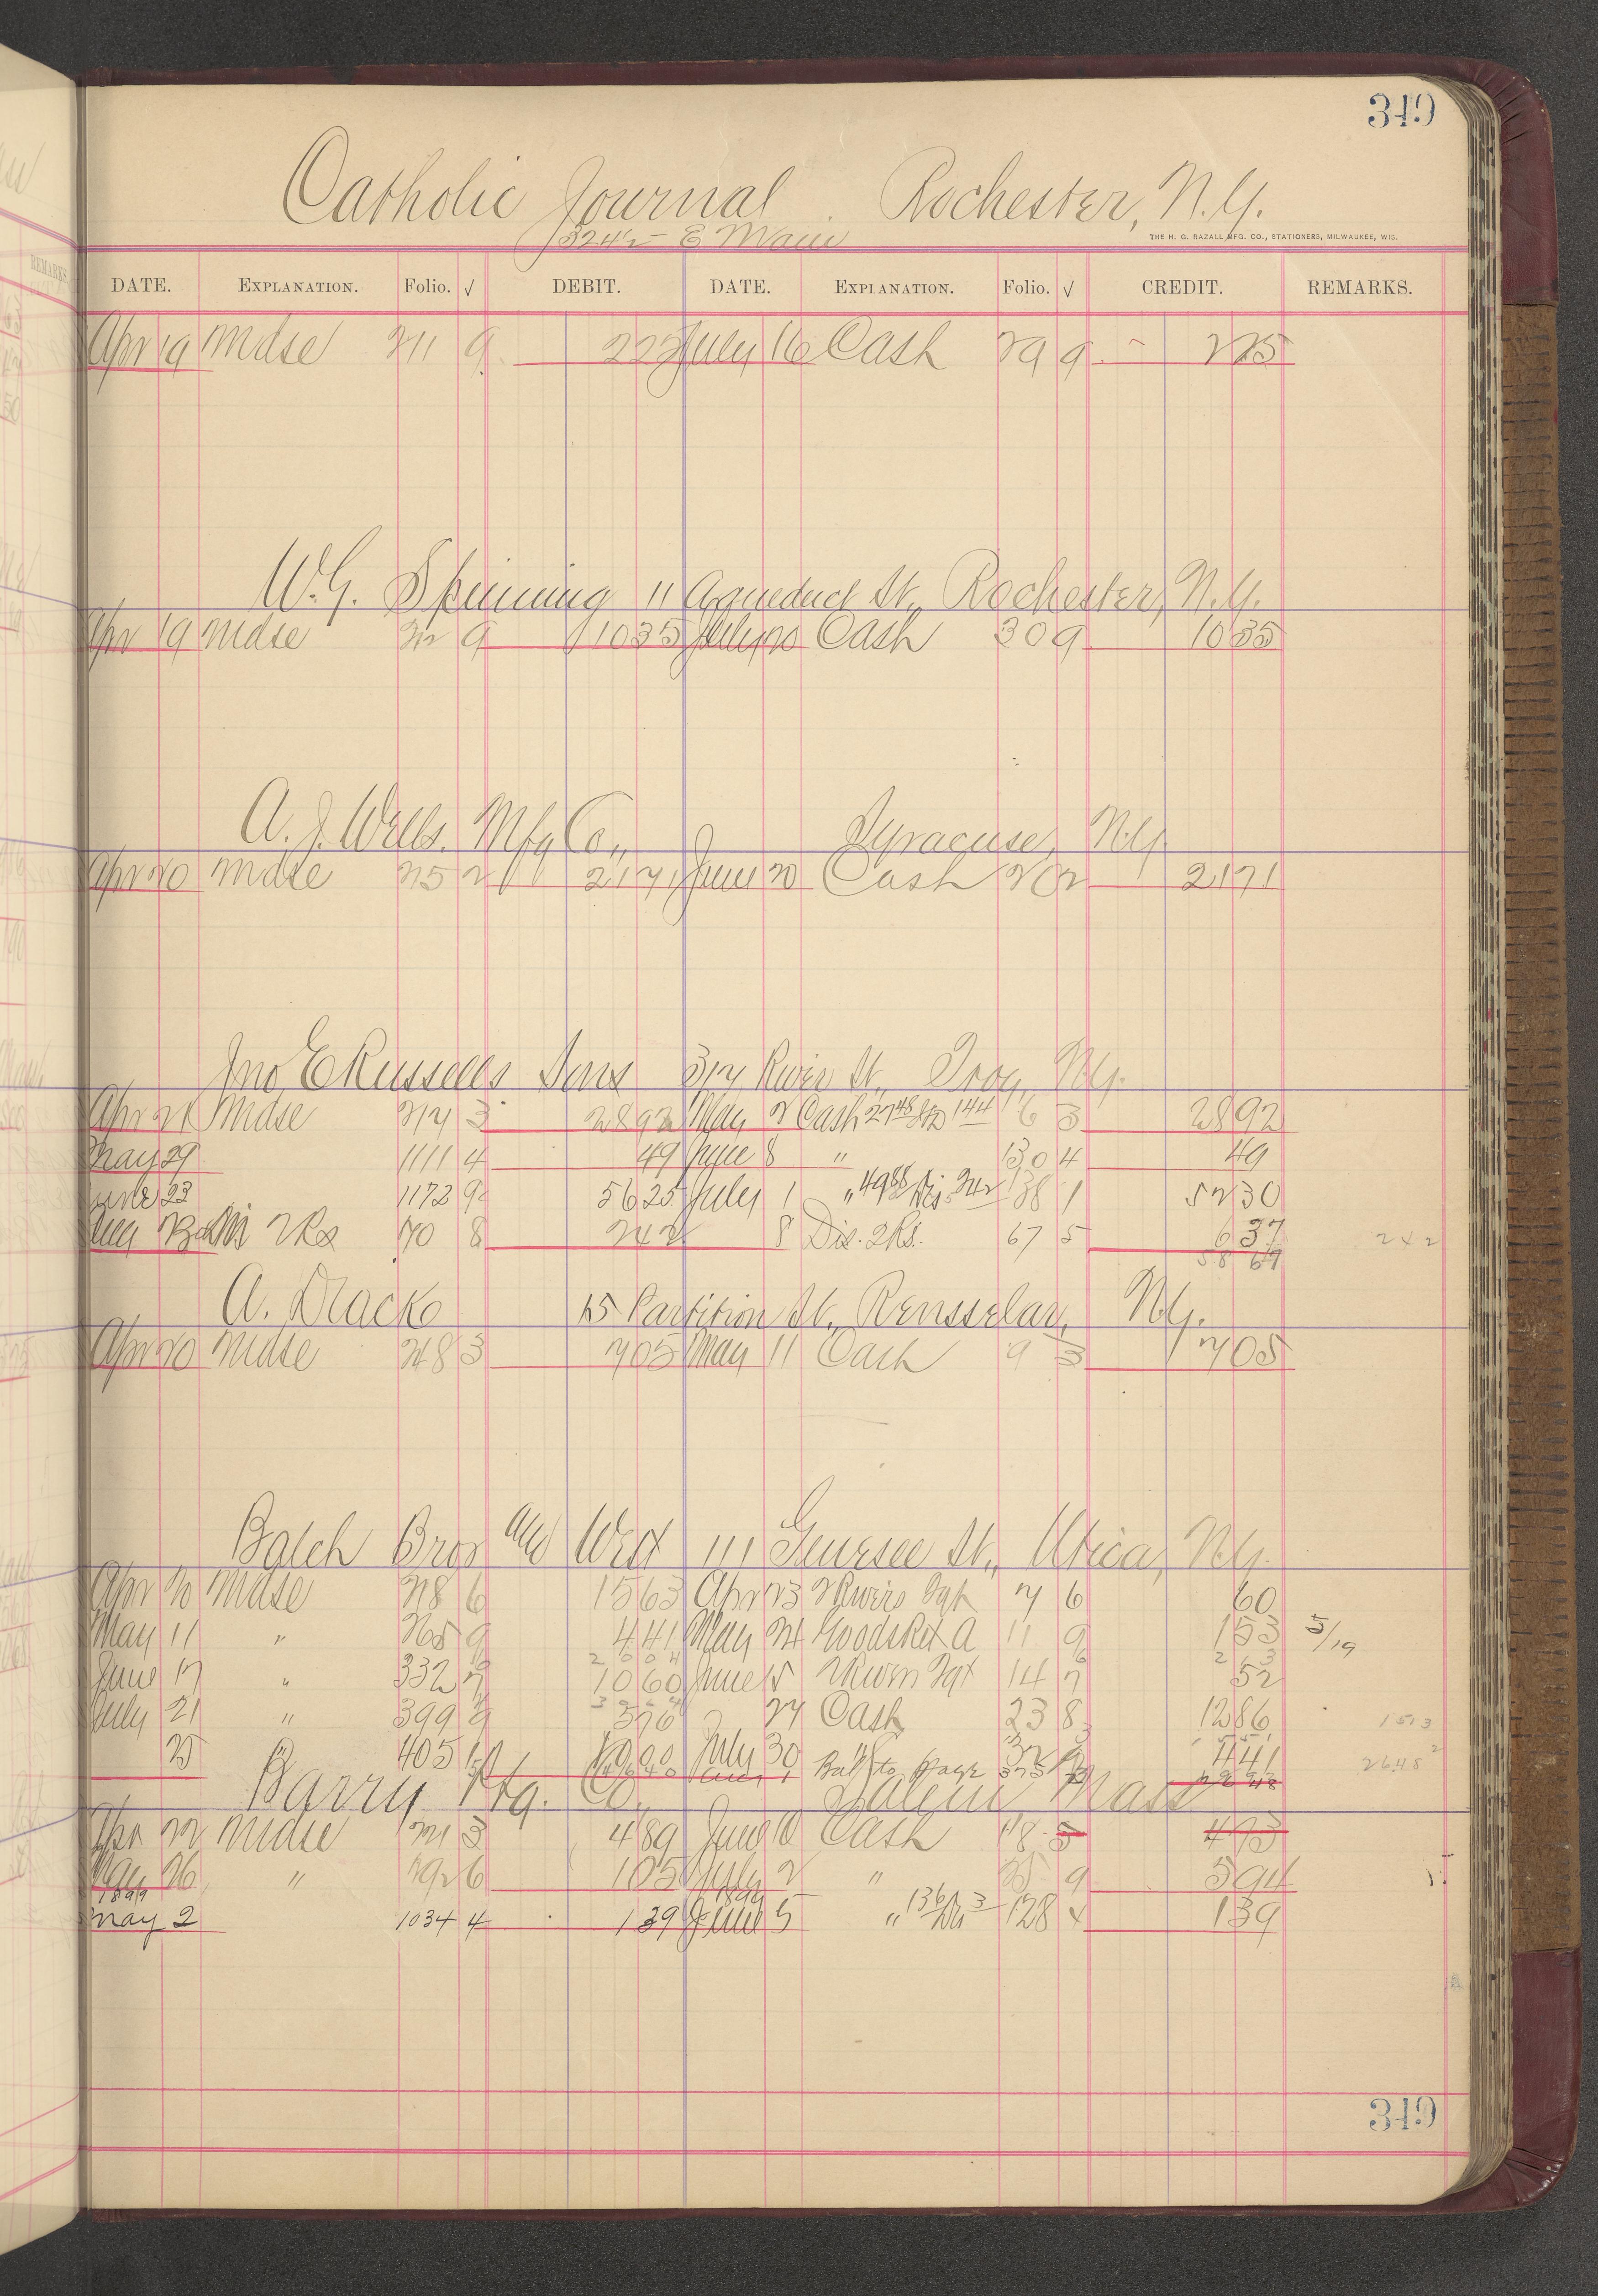 349
Catholic Journal . Rochester, N.Y.
324½ E Main
THE H. G. RAZALL MFG. CO., STATIONERS, MILWAUKEE, WIS.
DATE. EXPLANATION. Folio. √ DEBIT. DATE. EXPLANATION. Folio. √ CREDIT. REMARKS.
Apr 19 Mdse 211 9 222 July 16 Cash 29 9 225
W.G. Spinning 11 Aqueduct St., Rochester, N.Y.
Apr 19 Mdse 212 9 1035 July 20 Cash 30 9 1035
A. J. Wells Mfg Co., Syracuse, N.Y.
Apr 20 Mdse 215 2 2171 June 20 Cash 20 2 2171
Jno E Russells Sons 317 River St., Troy, N.Y.
Apr 21 Mdse 217 3 2892 May 2 Cash 2748 144 6 3 2892
May 29 1111 4 49 June 8 " 130 4 49
June 23 1172 9 5625 July 1 " 4988 Dis. 242 138 1 5230
2 Rs 70 8 242 8 Dis. 2 Rs. 67 5 637 242
5867
A. 15 Partition St., Rensselar, N.Y.
Apr 20 Mdse 218 3 705 May 11 Cash 9 3 705
Balch Bros and West 111 Genesee St., Utica, N.Y.
Apr 20 Mdse 218 6 1563 Apr 23 7 6 60
May 11 " 265 9 441 May 24 Goods Ret A 11 9 153 5/19
June 17 " 332 7 1060 June 15 14 7 52
July 21 " 399 376 27 Cash 23 8 1286 1513
25 " 405 1000 July 30 " 32 441 2648
Bal to page 375
Barry Co. Salem Mass
Apr 22 Mdse 221 3 489 June 10 Cash 18 5 493
May 26 " 292 6 105 July 2 " 9 594
1899 1899
May 2 1034 4 139 June 5 " 136 Dis 3 128 4 139
349